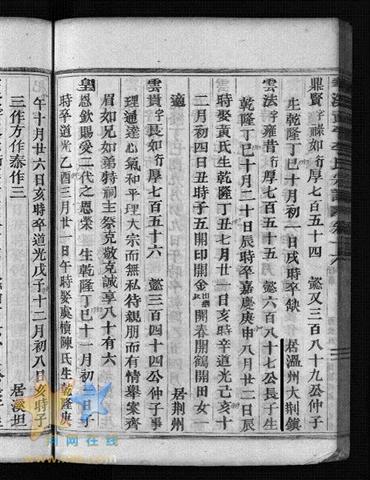 鼎賢字礫如行厚七百五十四 懿又三百八十九公仲子
生乾隆丁巳十月初一日戌時卒缺 居溫州大荆鎮
雲法字雍昔行厚七百五十五 懿六百八十七公長子生
乾隆丁巳十月二十日辰時卒嘉慶庚申八月廿二日辰
時娶黄氏生乾隆丁丑七月廿一日亥時卒道光己亥十
二月初四日丑時子五開印開金出繼開春開鶴開田女一
適 居荆州
雲貴字長如行厚七百五十六 懿三百四十四公仲子事
理通達心氣和平理大宗而無私待親朋而有情舉案齊
眉如兄如弟特祠主祭克敬克誠享八十有六
皇恩欽賜受二代之恩榮 生乾隆丁巳十一月初三日子
時卒道光乙酉三月廿 日午時娶虞積陳氏生乾隆庚
午十月廿六日亥時卒道光戊子十二月初八日亥時子
三作方作泰作三 居溪坦
河网在线